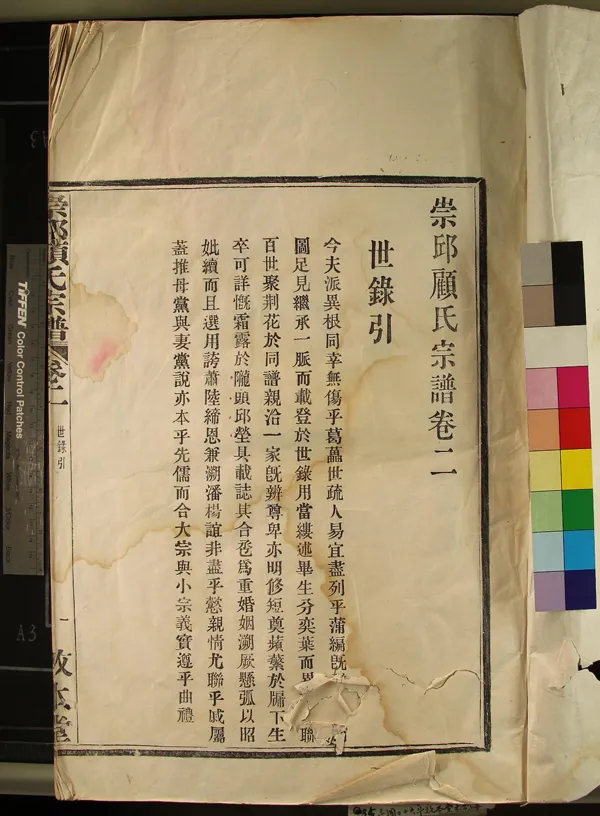 崇邱顧氏宗譜卷二
世錄引
今夫派異根同幸無傷乎葛藟世疏人易宜盡列乎蒲編旣
圖足見繼承一脈而載登於世錄用當縷述畢生分奕葉而異 聯
百世聚荆花於同譜親洽一家旣辨尊卑亦明修短奠蘋蘩於牖下生
卒可詳慨霜露於隴頭邱塋具載誌其合卺爲重婚姻溯厥懸弧以昭
妣續而且選用謗蕭陸締恩兼溯潘楊誼非盡乎懿親情尤聯乎戚屬
蓋推母黨與妻黨說亦本乎先儒而合大宗與小宗義實遵乎曲禮
崇邱顧氏宗譜
卷二
世錄引
一